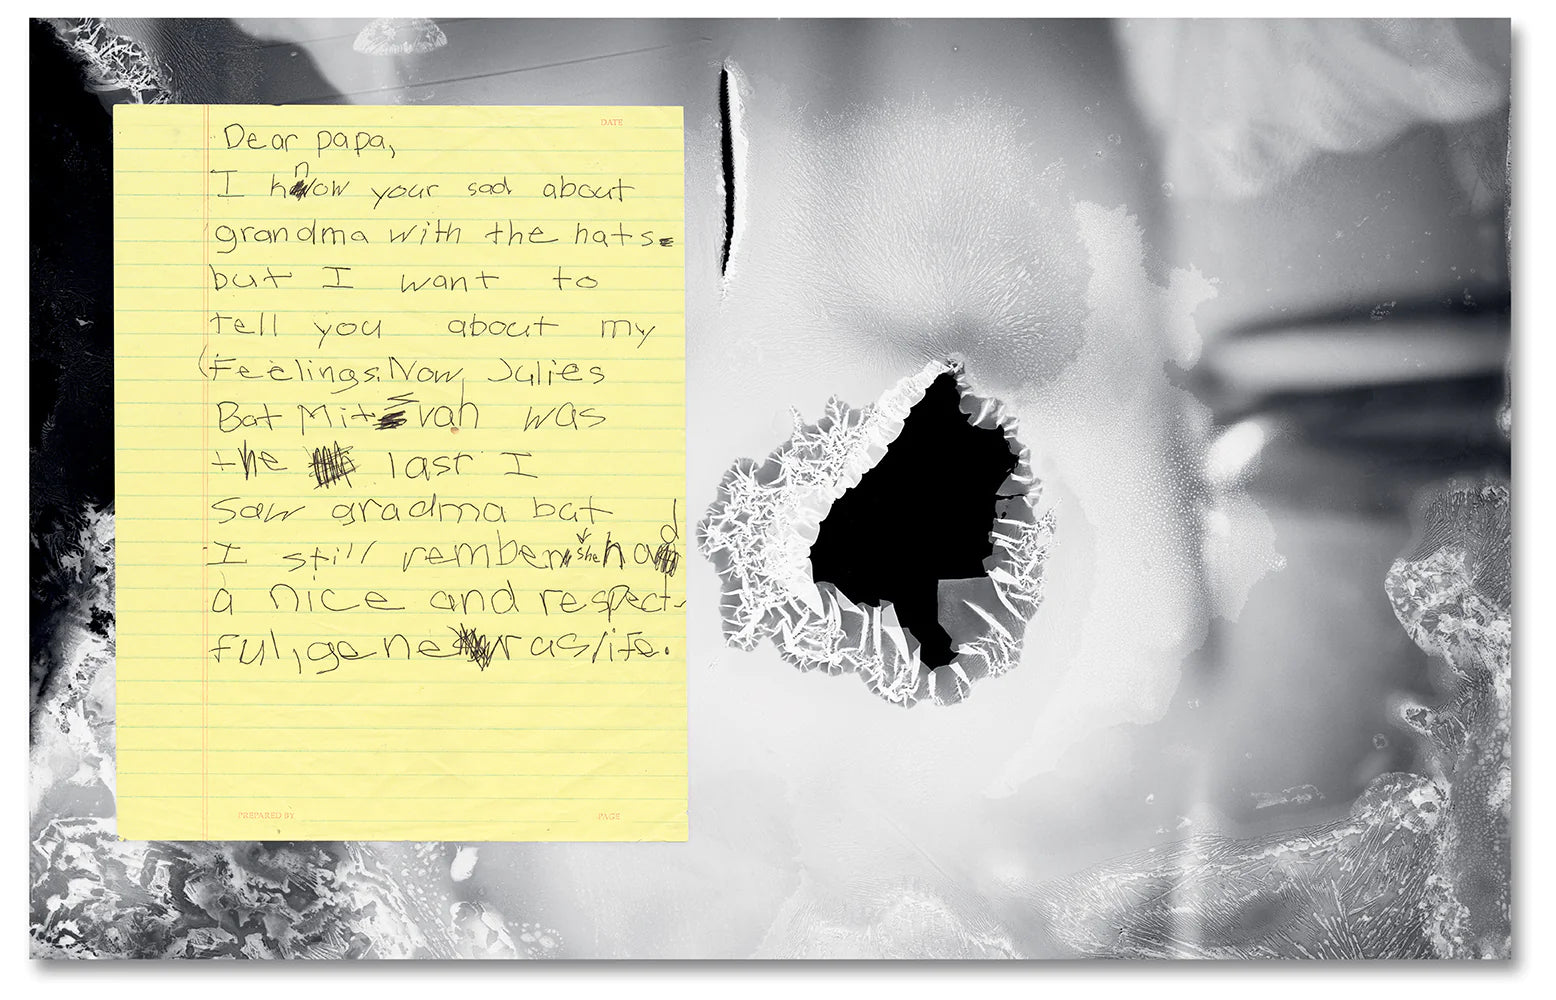 DATE
Dear papa,
I know your sad about
grandma with the hats.
but I want to
tell you about my
Feelings. Now, Julies
Bat Mitzvah was
the last I
saw gradma bat
I still rember she had
a nice and respect-
ful, generas life.
PREPARED BY PAGE